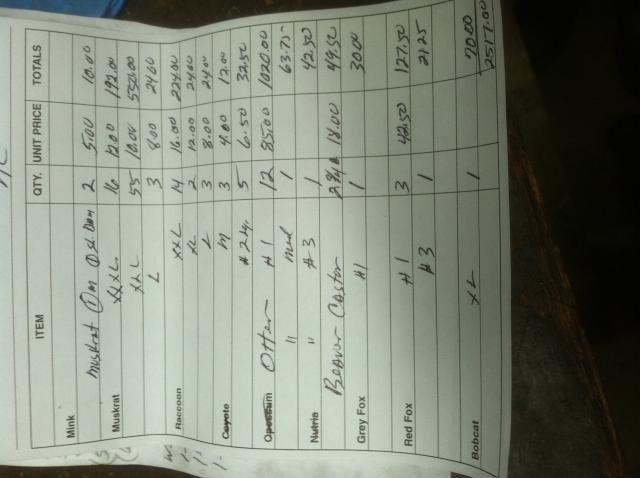 ITEM QTY. UNIT PRICE TOTALS
Mink
Muskrat 2 5.00 10.00
Muskrat XXXL 16 12.00 192.00
XXL 55 10.00 550.00
L 3 8.00 24.00
Raccoon XXL 14 16.00 224.00
XL 2 12.00 24.00
L 3 8.00 24.00
Coyote M 3 4.00 12.00
#2 5 6.50 32.50
Opossum Otter #1 12 85.00 1020.00
" med 1 63.75
Nutria " #3 1 42.50
Beaver Castor 2 3/4 18.00 49.50
Grey Fox #1 1 30.00
Red Fox #1 3 42.50 127.50
#3 1 21.25
Bobcat XL 1 70.00
2517.00